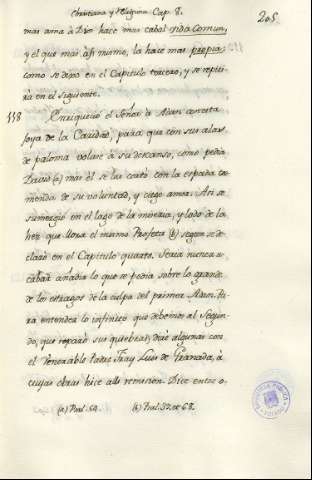 Christiana y Religiosa Cap. 8.
205
mas ama à Dios hace mas cabal vida comun,
y el que mas à si mismo, la hace mas propia;
como se dixo en el Capitulo tercero, y se repeti-
rà en el siguiente.
118 Enriqueciò el Señor à Adan con esta
joya de la Caridad, para que con sus alas
de paloma volase à su descanso, como pedia
David (a) mas èl se las cortò con la espada co-
mendo de su voluntad, y ciego amor. Asi se
sumergiò en el lago de la miseria, y lodo de la
hez que llora el mismo Profeta (b) segun se de-
clarò en el Capitulo quarto. Seria nunca a-
cabar añadir lo que se podia sobre lo grande
de los estragos de la culpa del primer Adan. Pa-
ra entender lo infinito que debemos al Segun-
do, que reparò sus quiebras, dixe algunas con
el Venerable Padre Fray Luis de Granada, à
cuyas obras hice alli remision. Dice entre o-
(a) Psal. 54. (b) Psal. 39. et 68.
BIBLIOTECA PUBLICA